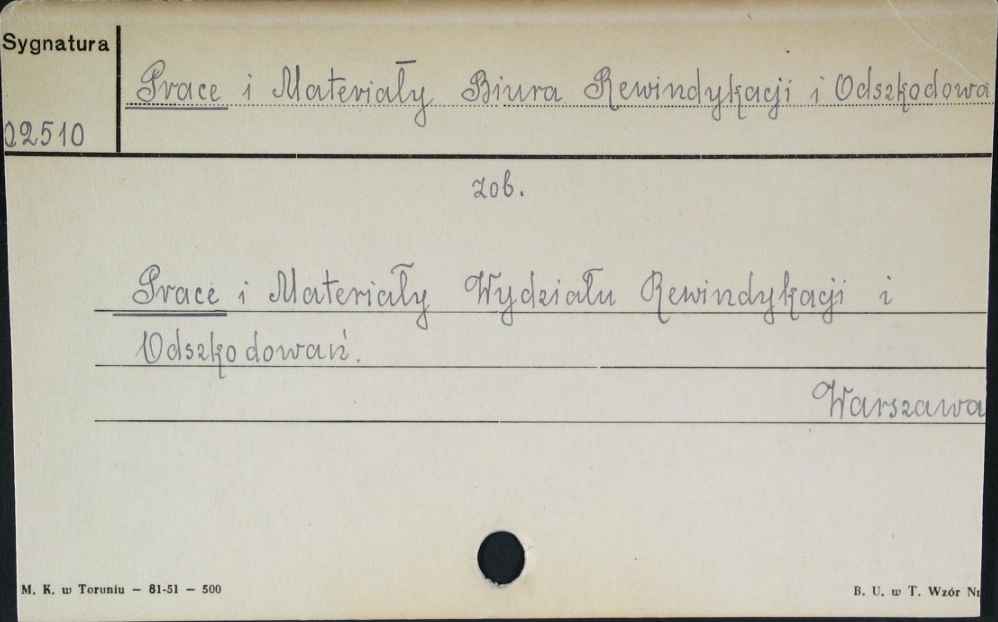 Sygnatura
Prace i Materiały Biura Rewindykacji i Odszkodowa
02510
zob.
Prace i Materiały Wydziału Rewindykacji i
Odszkodowań.
Warszawa
M. K. w Toruniu — 81-51 — 500
B. U. w T. Wzór Nr